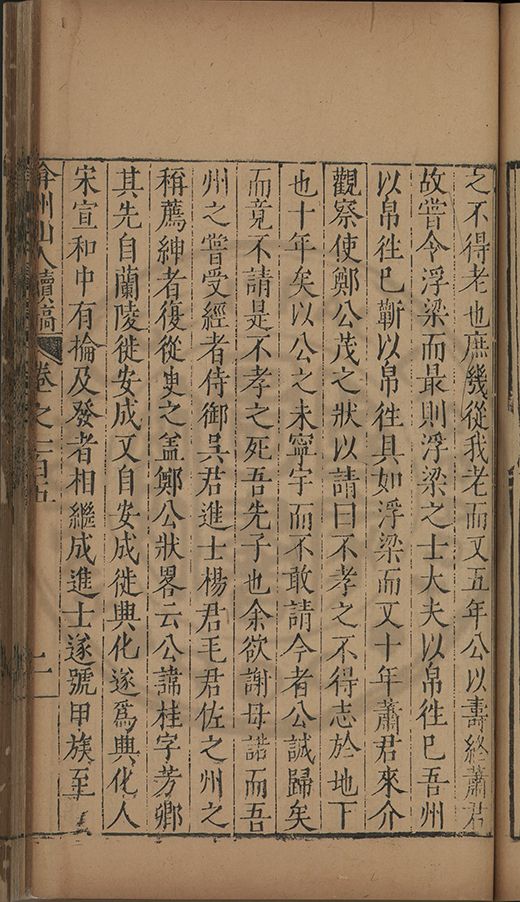 之不得老也庶幾從我老而又五年公以壽終蕭君
故嘗令浮梁而最則浮梁之士大夫以帛徃已吾州
以帛徃已蘄以帛徃具如浮梁而又十年蕭君來介
觀察使鄭公茂之狀以請曰不孝之不得志於地下
也十年矣以公之未寧宇而不敢請今者公誠歸矣
而竟不請是不孝之死吾先子也余欲謝母諾而吾
州之嘗受經者侍御吳君進士楊君毛君佐之州之
稱薦紳者復從臾之盖鄭公狀畧云公諱桂字芳卿
其先自蘭陵徙安成又自安成徙興化遂爲興化人
宋宣和中有棆及發者相繼成進士遂號甲族至
弇州山人續稿 卷之一百五 二